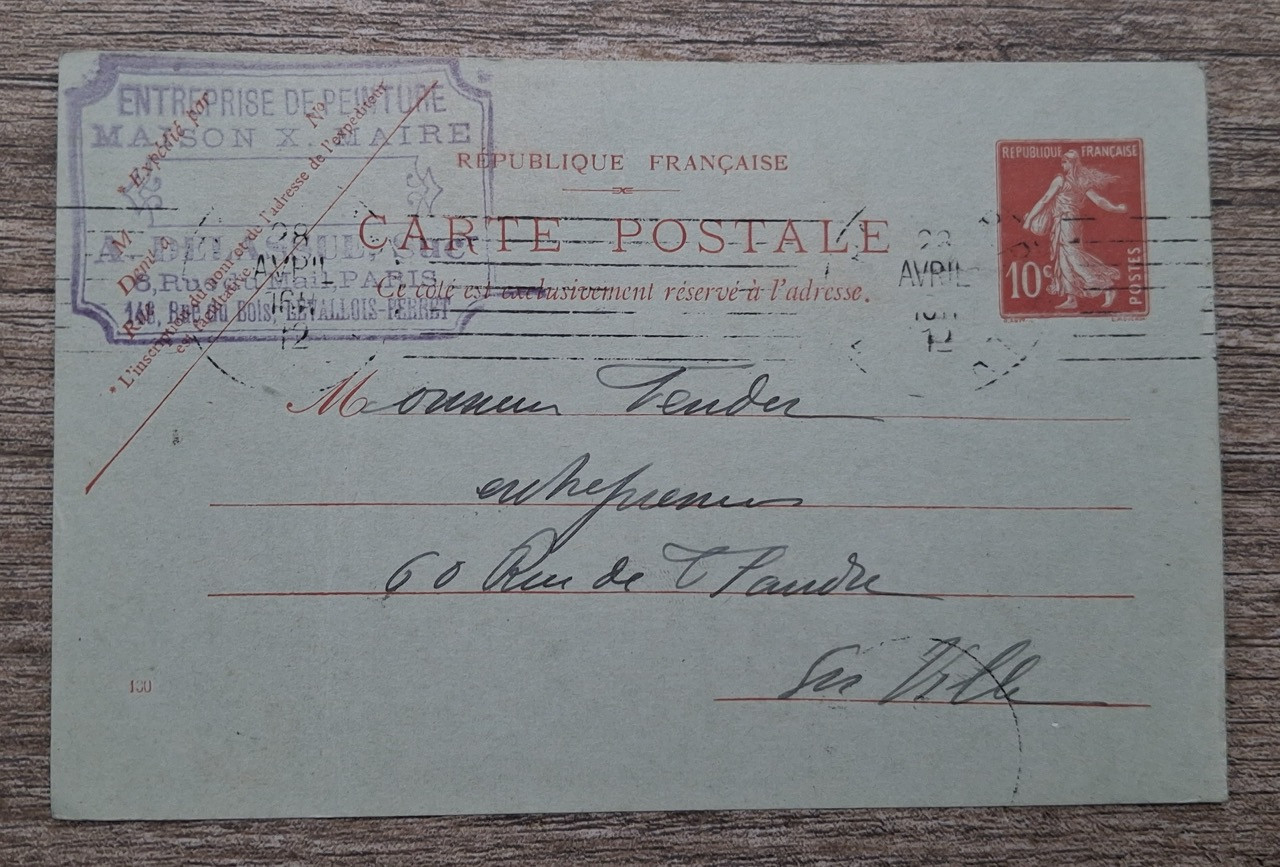 ENTREPRISE DE PEINTURE
MAISON X. MAIRE
8, Rue du Mail, PARIS
148, Rue du Bois, LEVALLOIS-PERRET
* Expédié par
M
Demt à
Rue
No
* L'inscription du nom et de l'adresse de l'expéditeur
est facultative.
RÉPUBLIQUE FRANÇAISE
CARTE POSTALE
Ce côté est exclusivement réservé à l'adresse.
RÉPUBLIQUE FRANÇAISE
10c
POSTES
28
AVRIL
12
28
AVRIL
12
Monsieur
entrepreneur
60 Rue de
En Ville
130